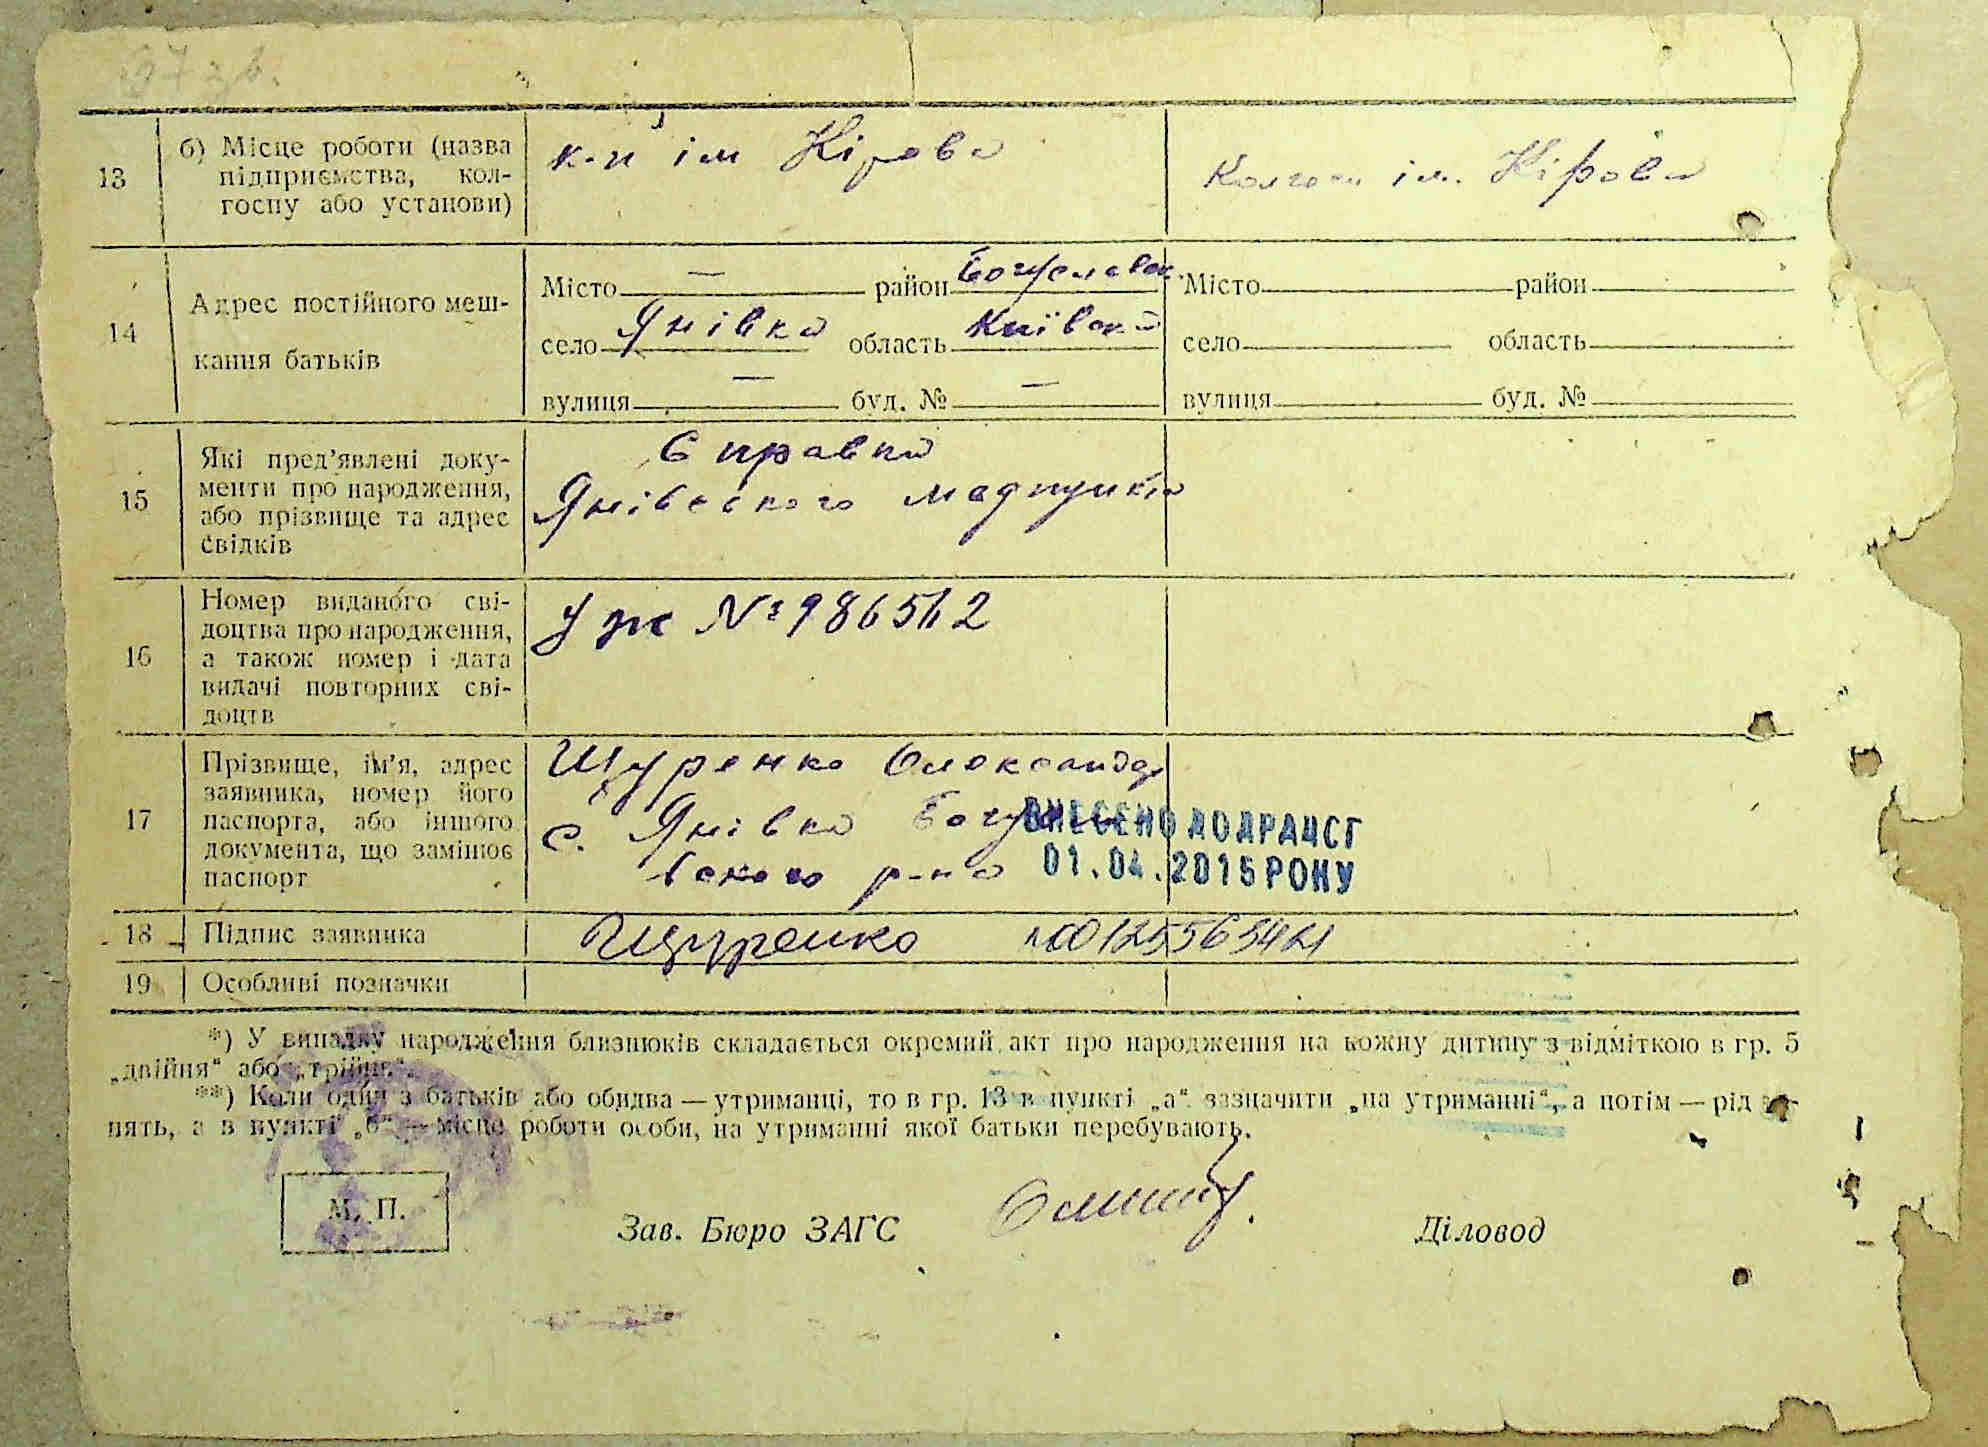 13
б) Місце роботи (назва
підприємства, кол-
госпу або установи)
к-п ім Кірова
Колгосп ім. Кірова
14
Адрес постійного меш-
кання батьків
Місто — район Богуславськ.
село Янівка область Київська
вулиця — буд. № —
Місто район
село область
вулиця буд. №
15
Які пред’явлені доку-
менти про народження,
або прізвище та адрес
свідків
Справка
Янівського медпункта
16
Номер виданого сві-
доцтва про народження,
а також номер і дата
видачі повторних сві-
доцтв
№ 986512
17
Прізвище, ім’я, адрес
заявника, номер його
паспорта, або іншого
документа, що замінює
паспорт
Щуренко Олександр
с. Янівка Богусла-
вського р-на
ВНЕСЕНО ДО ДРАЦСГ
01.04.2015 РОКУ
18
Підпис заявника
Щуренко 00125565421
19
Особливі позначки
*) У випадку народження близнюків складається окремий акт про народження на кожну дитину з відміткою в гр. 5
„двійня“ або „трійня“.
**) Коли один з батьків або обидва — утриманці, то в гр. 13 в пункті „а“ зазначити „на утриманні“, а потім — рід за-
нять, а в пункті „б“ — місце роботи особи, на утриманні якої батьки перебувають.
М. П.
Зав. Бюро ЗАГС
Діловод